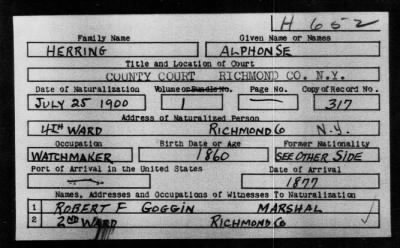 H 652
Family Name Given Name or Names
HERRING ALPHONSE
Title and Location of Court
COUNTY COURT RICHMOND CO. N.Y.
Date of Naturalization Volume or Bundle No. Page No. Copy of Record No.
JULY 25 1900 1 — 317
Address of Naturalized Person
4TH WARD RICHMOND CO N.Y.
Occupation Birth Date or Age Former Nationality
WATCHMAKER 1860 SEE OTHER SIDE
Port of Arrival in the United States Date of Arrival
— 1877
Names, Addresses and Occupations of Witnesses To Naturalization
1 ROBERT F GOGGIN MARSHAL
2 2ND WARD RICHMOND CO